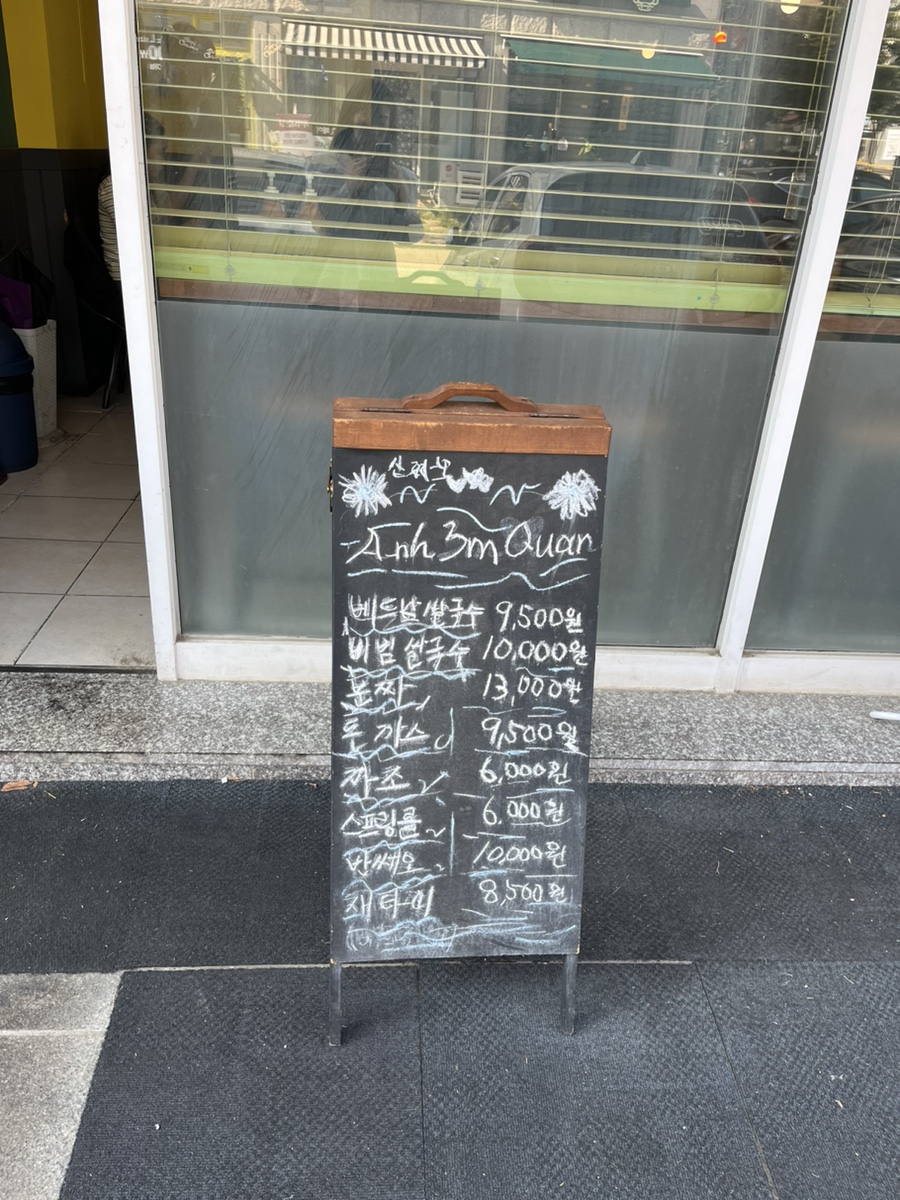 Anh 3m Quan
베트남쌀국수 9,500원
비빔쌀국수 10,000원
분짜 13,000원
돈까스 9,500원
짜조 6,000원
스프링롤 6,000원
반쎄오 10,000원
새타이 8,500원